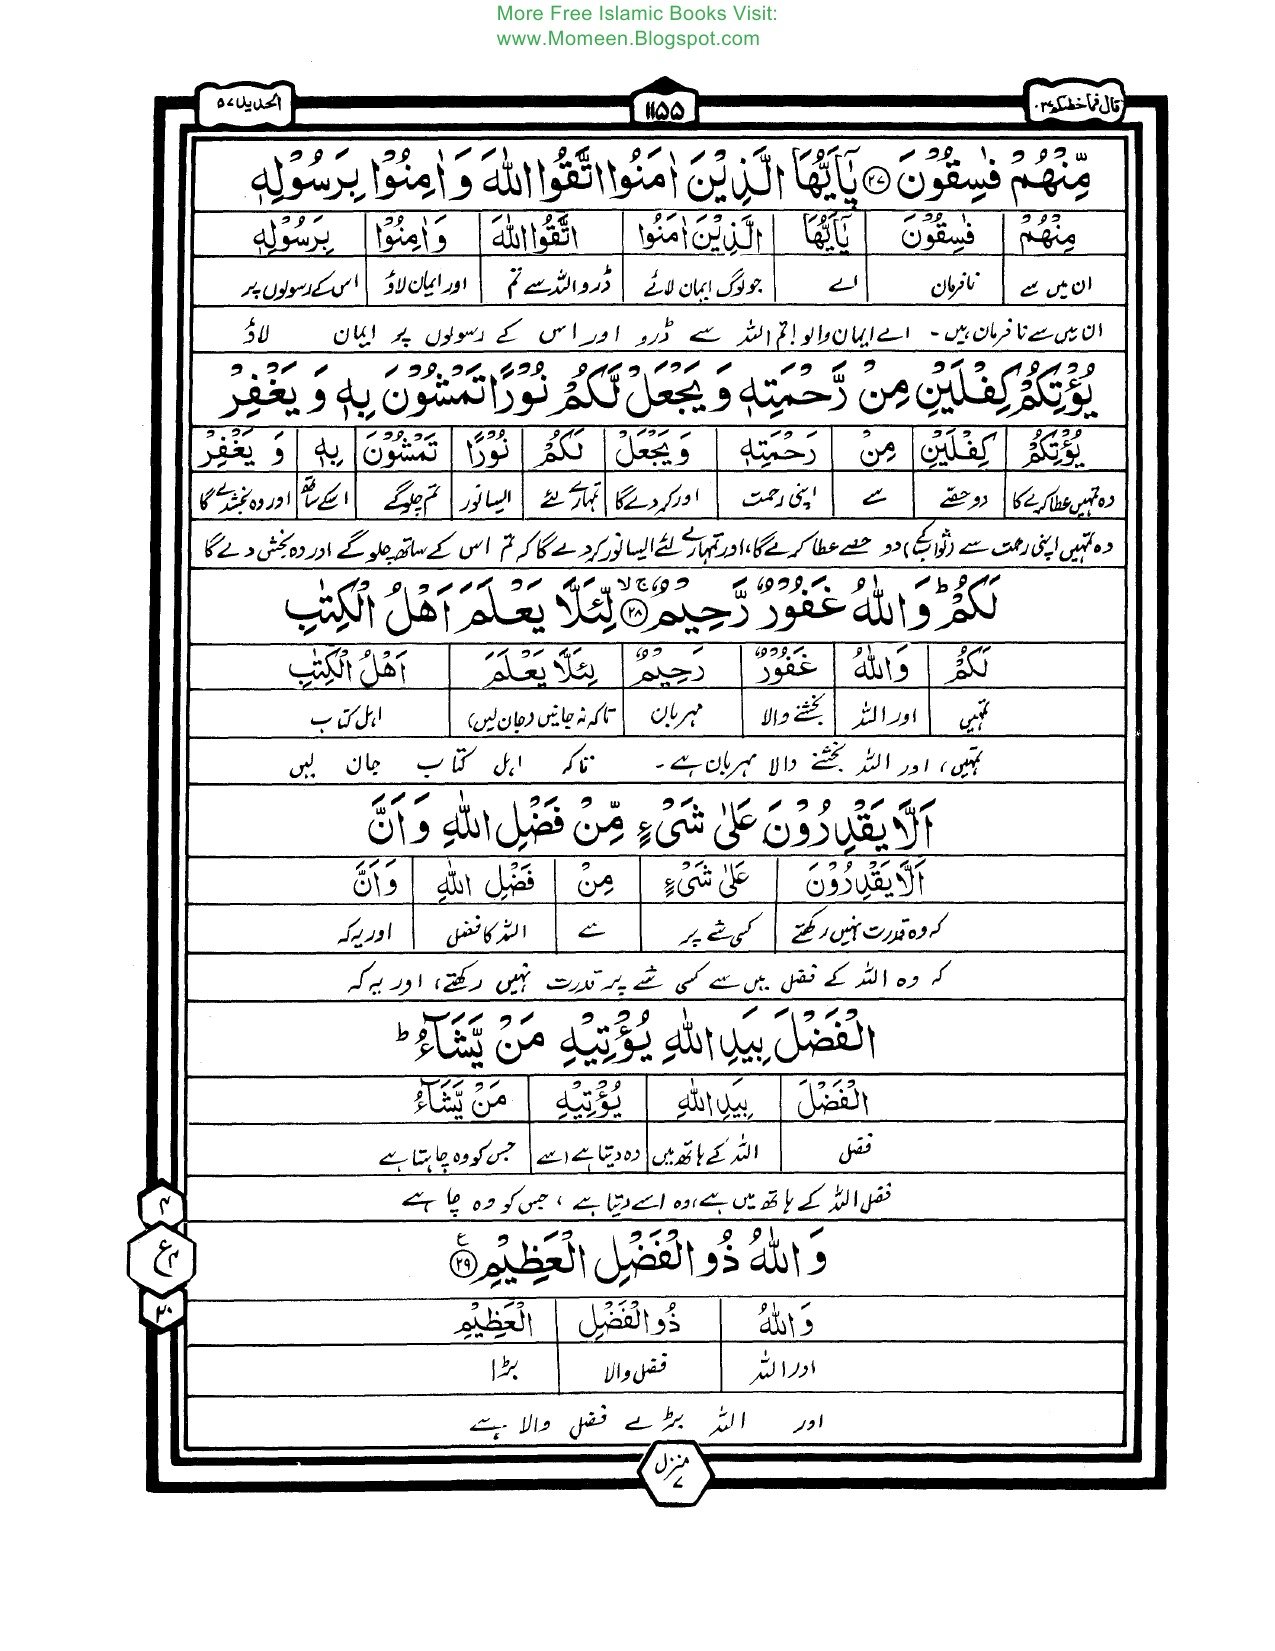 More Free Islamic Books Visit:
www.Momeen.Blogspot.com
قال فما خطبكم ٢٧ ١١٥٥ الحدید ٥٧
مِّنْهُمْ فٰسِقُوْنَ ۝٢٧ یٰۤاَیُّهَا الَّذِیْنَ اٰمَنُوا اتَّقُوا اللّٰهَ وَ اٰمِنُوْا بِرَسُوْلِهٖ
مِنْهُمْ فٰسِقُوْنَ یٰۤاَیُّهَا الَّذِیْنَ اٰمَنُوا اتَّقُوا اللّٰهَ وَاٰمِنُوْا بِرَسُوْلِهٖ
ان میں سے نافرمان اے جو لوگ ایمان لائے ڈرو اللہ سے تم اور ایمان لاؤ اس کے رسولوں پر
ان میں سے نافرمان ہیں۔ اے ایمان والو! تم اللہ سے ڈرو اور اس کے رسولوں پر ایمان لاؤ
یُؤْتِكُمْ كِفْلَیْنِ مِنْ رَّحْمَتِهٖ وَ یَجْعَلْ لَّكُمْ نُوْرًا تَمْشُوْنَ بِهٖ وَ یَغْفِرْ
یُؤْتِكُمْ كِفْلَیْنِ مِنْ رَحْمَتِهٖ وَ یَجْعَلْ لَكُمْ نُوْرًا تَمْشُوْنَ بِهٖ وَ یَغْفِرْ
وہ تمہیں عطا کرے گا دو حصے سے اپنی رحمت اور کر دے گا تمہارے لئے ایسا نور تم چلو گے اسکے ساتھ اور وہ بخشدے گا
وہ تمہیں اپنی رحمت سے (ثواب کے) دو حصے عطا کرے گا، اور تمہارے لئے ایسا نور کر دے گا کہ تم اس کے ساتھ چلو گے اور وہ بخش دے گا
لَكُمْ ؕ وَ اللّٰهُ غَفُوْرٌ رَّحِیْمٌ ۝٢٨ لِّئَلَّا یَعْلَمَ اَهْلُ الْكِتٰبِ
لَكُمْ وَاللّٰهُ غَفُوْرٌ رَحِیْمٌ لِئَلَّا یَعْلَمَ اَهْلُ الْكِتٰبِ
تمہیں اور اللہ بخشنے والا مہربان تاکہ نہ جانیں (جان لیں) اہل کتاب
تمہیں، اور اللہ بخشنے والا مہربان ہے۔ تاکہ اہل کتاب جان لیں
اَلَّا یَقْدِرُوْنَ عَلٰی شَیْءٍ مِّنْ فَضْلِ اللّٰهِ وَ اَنَّ
اَلَّا یَقْدِرُوْنَ عَلٰی شَیْءٍ مِنْ فَضْلِ اللّٰهِ وَاَنَّ
کہ وہ قدرت نہیں رکھتے کسی شے پر سے اللہ کا فضل اور یہ کہ
کہ وہ اللہ کے فضل میں سے کسی شے پر قدرت نہیں رکھتے، اور یہ کہ
الْفَضْلَ بِیَدِ اللّٰهِ یُؤْتِیْهِ مَنْ یَّشَآءُ ؕ
الْفَضْلَ بِیَدِ اللّٰهِ یُؤْتِیْهِ مَنْ یَّشَآءُ
فضل اللہ کے ہاتھ میں وہ دیتا ہے اسے جس کو وہ چاہتا ہے
فضل اللہ کے ہاتھ میں ہے، وہ اسے دیتا ہے، جس کو وہ چاہے
وَ اللّٰهُ ذُو الْفَضْلِ الْعَظِیْمِ ۝٢٩ ع
وَاللّٰهُ ذُو الْفَضْلِ الْعَظِیْمِ
اور اللہ فضل والا بڑا
اور اللہ بڑے فضل والا ہے
٤
٢٠
منزل ٧